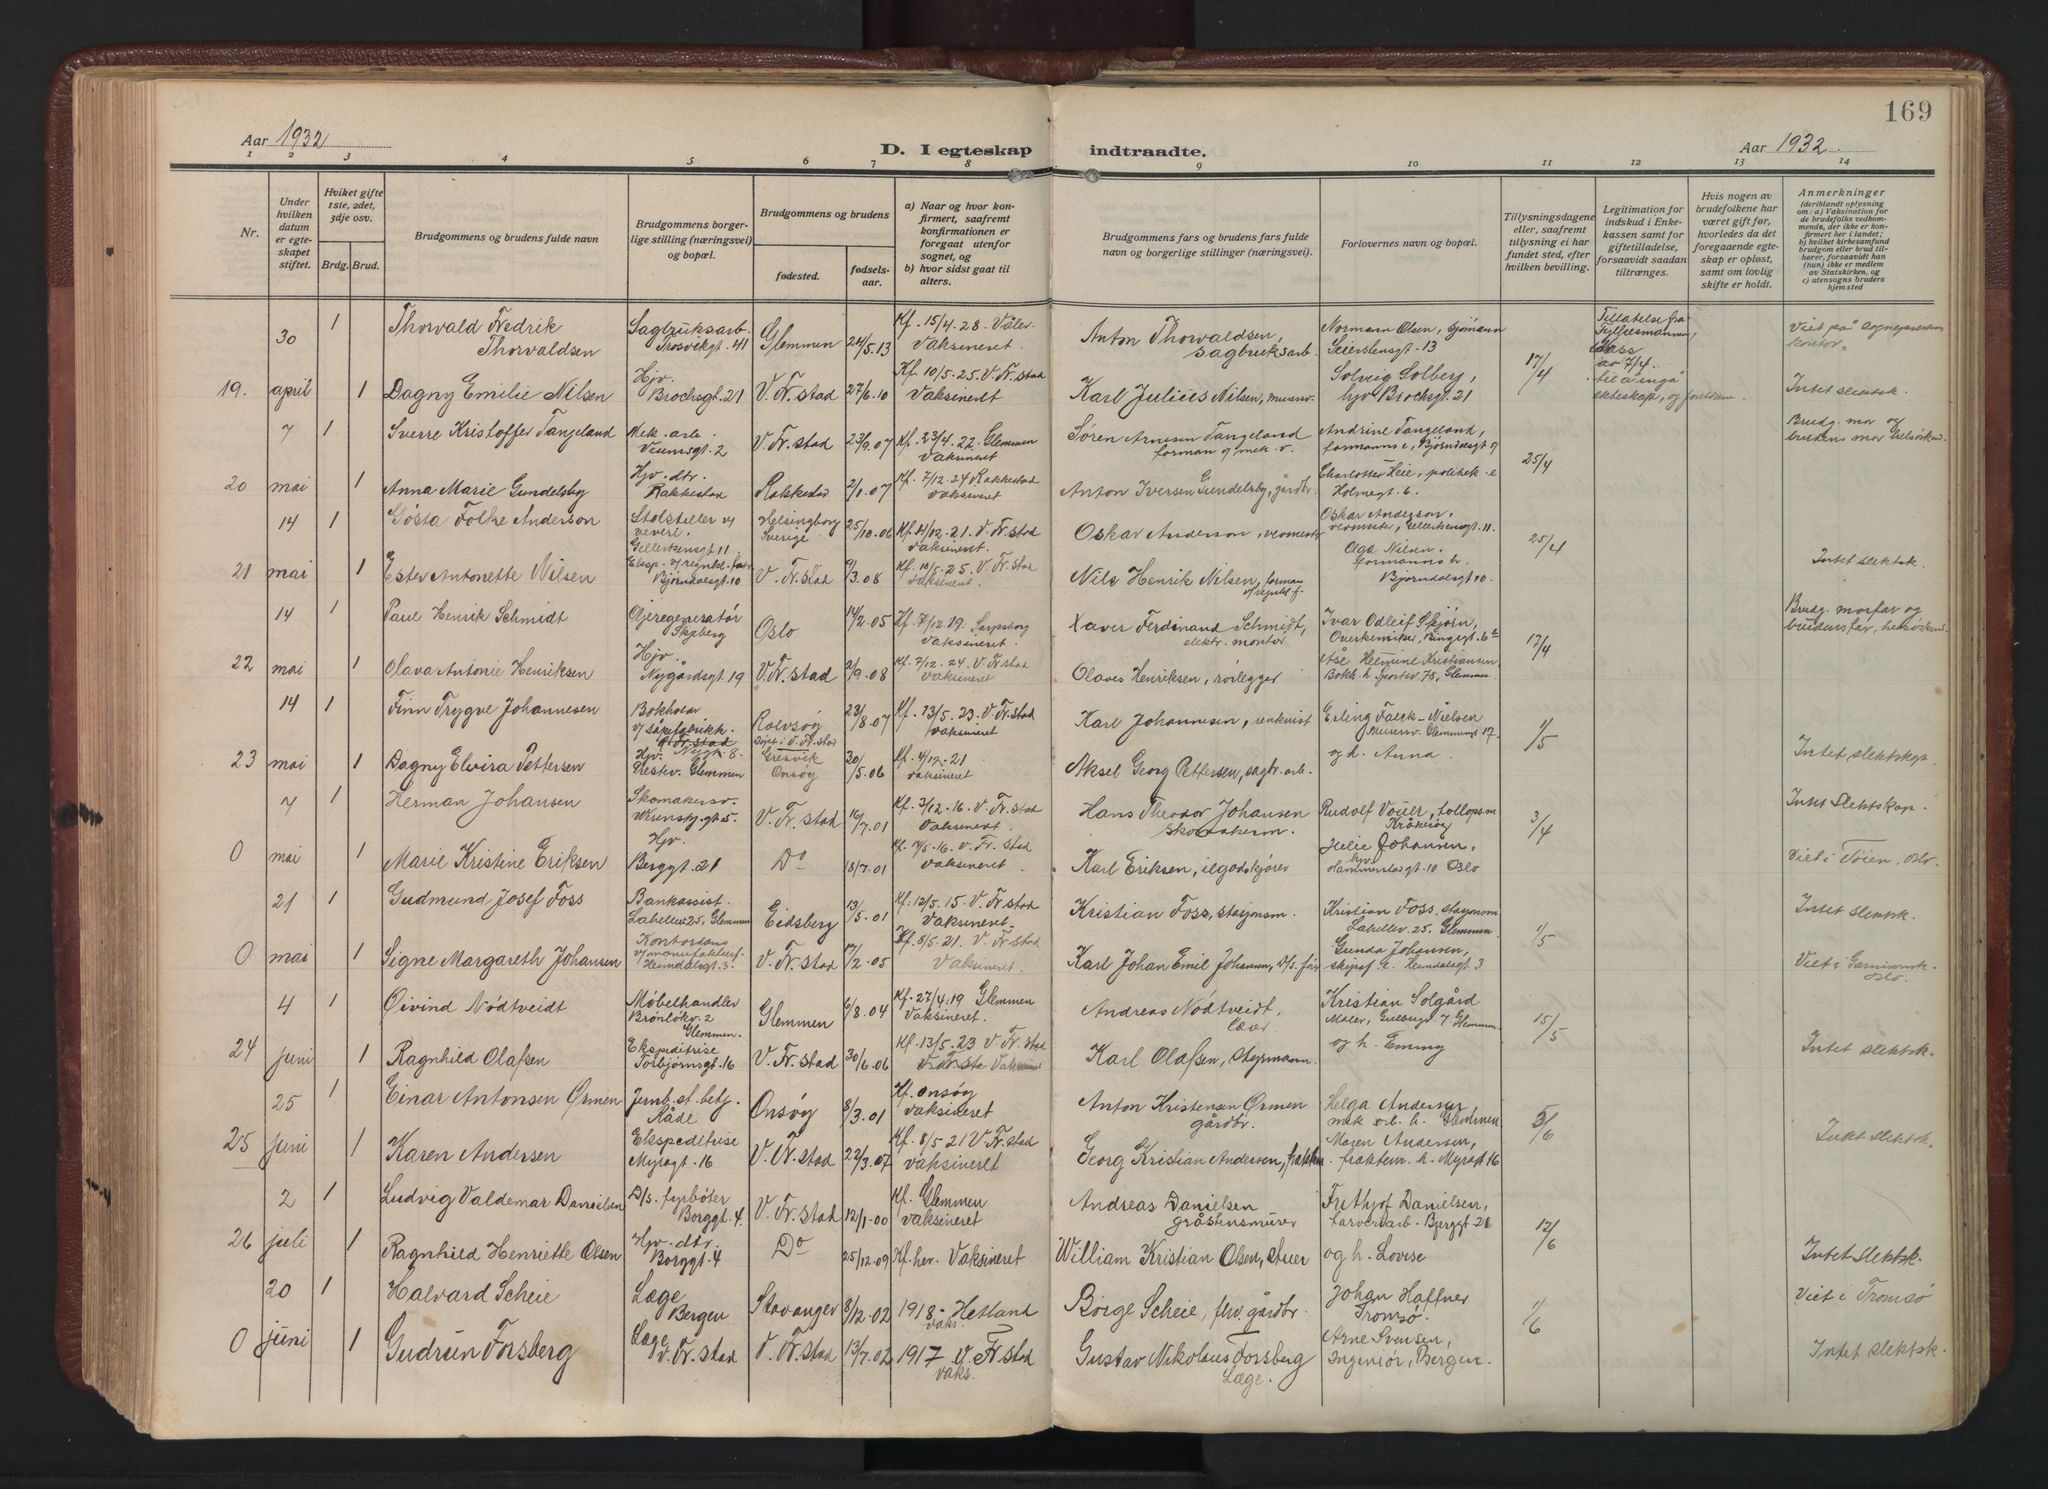 169
Aar 1932
D. I egteskap
indtraadte.
Aar 1932
1 2 3 4 5 6 7 8 9 10 11 12 13 14
Nr.
Under hvilken datum er egteskapet stiftet.
Hviket gifte 1ste, 2det, 3dje osv.
Brdg. Brud.
Brudgommens og brudens fulde navn
Brudgommens borgerlige stilling (næringsvei) og bopæl.
Brudgommens og brudens
fødested.
fødselsaar.
a) Naar og hvor konfirmert, saafremt konfirmationen er foregaat utenfor sognet, og
b) hvor sidst gaat til alters.
Brudgommens fars og brudens fars fulde navn og borgerlige stillinger (næringsvei).
Forlovernes navn og bopæl.
Tillysningsdagene eller, saafremt tillysning ei har fundet sted, efter hvilken bevilling.
Legitimation for indskud i Enkekassen samt for giftetilladelse, forsaavidt saadan tiltrænges.
Hvis nogen av brudefolkene har været gift før, hvorledes da det foregaaende egteskap er opløst, samt om lovlig skifte er holdt.
Anmerkninger
(deriblandt oplysning om: a) Vaksination for de brudefolks vedkommende, der ikke er konfirmert her i landet; b) hvilket kirkesamfund brudgom eller brud tilhører, forsaavidt han (hun) ikke er medlem av Statskirken, og c) utensogns bruders hjemsted
30 1 Thorvald Fredrik Thorvaldsen Sagbruksarb. Trosvikgt. 41 Glemmen 24/5.13 Kf. 15/4.28. Våler. Vaksineret Anton Thorvaldsen, sagbruksarb. Normann Olsen, sjömann Seierstensgt. 13
19. april 1 Dagny Emilie Nilsen Hjv. Brochsgt. 21 V. Fr. stad 27/6.10 Kf. 10/5.25. V. Fr. stad Vaksineret Karl Julius Nilsen, murersv. Solveig Solberg, hjv Brochsgt. 21 17/4 Tillatelse fra Fylkesmannen av 7/4. til å ingå ekteskap, og foreldrene. Intet slektsk.
7 1 Sverre Kristoffer Tangeland Mek. arb. Veumsgt. 2 V. Fr. stad 23/9.07 Kf. 23/4.22. Glemmen Vaksineret Sören Arnesen Tangeland formann v/ mek. v. Andrine Tangeland, formanns e, Björndalsgt 9 Brudg. mor og brudens mor helsösken
20 mai 1 Anna Marie Gundelsby Hjv. dtr. Rakkestad Rakkestad 2/1.07 Kf. 7/12.24 Rakkestad Vaksineret Anton Iversen Gundelsby, gårdbr. Charlotte Heie, politik. e Holmegt. 6. 25/4
14 1 Gösta Folke Anderson Stolstiller v/ veveri. Gellertsensgt. 11 Helsingborg Sverige 25/10.06 Kf. 4/12.21. V. Fr. stad Vaksineret. Oskar Anderson, vevmester Oskar Anderson, vevmester, Gellertsensgt. 11.
21 mai 1 Ester Antonette Nilsen Björndalsgt. 10 V. Fr. stad 9/3.08 Kf. 10/5.25. V. Fr. stad Vaksineret. Nils Henrik Nilsen, forman Olga Nilsen, formanns h. Björndalsgt 10. 25/4 Intet slektsk.
14 1 Paul Henrik Schmidt Oljeregeneratör Skjeberg Oslo 14/2.05 Kf. 7/12 19. Sarpsborg Vaksineret. Xaver Ferdinand Schmidt, elektr. montör Ivar Odleif Skjörn, Overkemiker, Bingsgt. 6 Brudg. morfar og brudens far, helsösken
22 mai 1 Olava Antonie Henriksen Hjv. Nygårdsgt. 19 V. Fr. stad 2/9.08 Kf. 7/12.24. V. Fr. stad Vaksineret. Olaves Henriksen, rörlegger Åse Helmine Kristiansen Bokh. h 78, Glemmen 17/4
14 1 Finn Trygve Johannesen Bokholder v/ såpefabrikk. Rolvsöy 23/8.07 Kf. 13/5.23. V. Fr. stad Vaksineret Karl Johannesen, Erling Falck-Nielsen Murersv. Glemmengt 17.
23 mai 1 Dagny Elvira Pettersen Hjv. Prestev. Glemmen Gresvik Onsöy 30/5.06 Kf. 4/12.21 Vaksineret Aksel Georg Pettersen, sagbr. arb. og h. Anna 1/5 Intet slektskap.
7 1 Herman Johansen Skomakersv. V. Fr. stad 16/7.01 Kf. 3/12.16. V. Fr. stad Vaksineret. Hans Theodor Johansen Skomakerm. Rudolf Kråkeröy 3/4 Intet Slektskap
0 mai 1 Marie Kristine Eriksen Hjv. Berggt. 21 Do 18/7.01 V. Fr. stad Vaksineret Karl Eriksen, ilgodskjörer Julie Johansen, hjv Hammerstasgt. 10 Oslo Viet i Töien, Oslo
21 1 Gudmund Josef Foss Bankassist. Labellev 25, Glemmen Eidsberg 13/5.01 Kf. 12/5.15. V. Fr. stad Vaksineret. Kristian Foss, stasjonsm. Kristian Foss, stasjonsm Labellev. 25. Glemmen. Intet slektsk.
0 mai 1 Signe Margareth Johansen Kontordame v/ manufakturf. Heimdalsgt 3. V. Fr. stad 17/2.05 Kf. 8/5.21. V. Fr. stad Vaksineret. Karl Johan Emil Johansen, Gunda Johansen, skipsf. e. Heimdalsgt 3 1/5 Viet i Garnisonsk. Oslo.
4 1 Öivind Nödtveidt Möbelhandler Brönlökv. 2 Glemmen. Glemmen 6/8.04 Kf. 27/4.19 Glemmen Vaksineret. Andreas Nödtveidt, Kristian Solgård Maler, 7 Glemmen
24 juni 1 Ragnhild Olafsen Ekspeditrise Torbjörnsgt. 16 V. Fr. stad 30/6.06 Kf. 13/5.23 V. Fr. stad Vaksineret Karl Olafsen, styrmann. og h. Emmy 15/5 Intet slektsk.
25 1 Einar Antonsen Örmen Jernb. st. betj. Råde Onsöy 8/3.01 Kf. Onsöy Vaksineret Anton Kristensen Örmen gårdbr. Helga Andersen mek arb. h. Glemmen 5/6
25 juni 1 Karen Andersen Ekspeditrise Myragt. 16 V. Fr. stad 22/3.07 Kf. 8/5.21 V. Fr. stad Vaksineret Georg Kristian Andersen, Maren Andersen, h. Myragt 16 Intet slektsk.
2 1 Ludvig Valdemar Danielsen D/s. fyrböter Borggt. 4. V. Fr. stad 12/1.00 Kf. Glemmen Vaksineret Andreas Danielsen gråstensmurer Frithjof Danielsen, farveriarb. Bjerggt 21
26 juli 1 Ragnhild Henriette Olsen Hjv. dtr. Borggt. 4 Do 25/12.09 Kf. her. Vaksineret William Kristian Olsen, stuer og h. Lovise 12/6 Intet slektsk.
20 1 Halvard Scheie Læge Bergen Stavanger 8/12.02 1918 - Hetland vaks. Börge Scheie, fhv. gårdbr. Johan Haffner Tromsö. 1/6 Viet i Tromsö
0 juni 1 Gudrun Forsberg Læge V. Fr. stad V. Fr. stad 13/7.02 1917 V. Fr. stad vaks. Gustav Nikolaus Forsberg Læge. Arne Svensen, Ingeniör, Bergen. Intet slektsk.